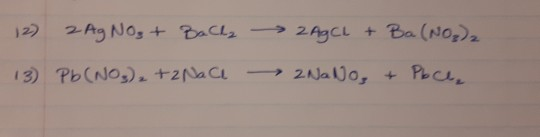 12) 2AgNO₃ + BaCl₂ → 2AgCl + Ba(NO₃)₂
13) Pb(NO₃)₂ + 2NaCl → 2NaNO₃ + PbCl₂